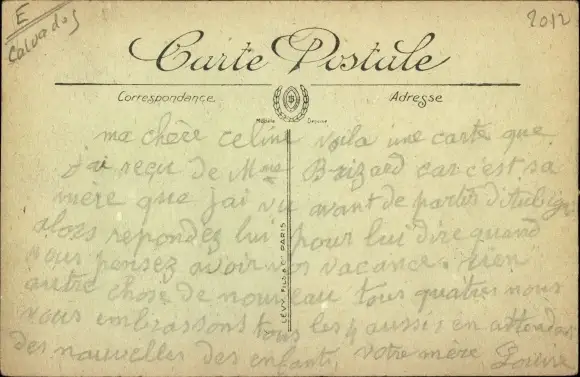 E
Calvados
2012
Carte Postale
Correspondance
Adresse
Modèle Déposé
LEVY FILS & Cie PARIS
ma chère celine voila une carte que
j'ai reçu de Mme Brizard car c'est sa
mère que jai vu avant de partir
alors repondez lui pour lui dire quand
vous pensez avoir vos vacance. rien
autre chose de nouveau tous quatres nous
vous embrassons tous les 4 aussi en attendant
des nouvelles des enfants votre mère